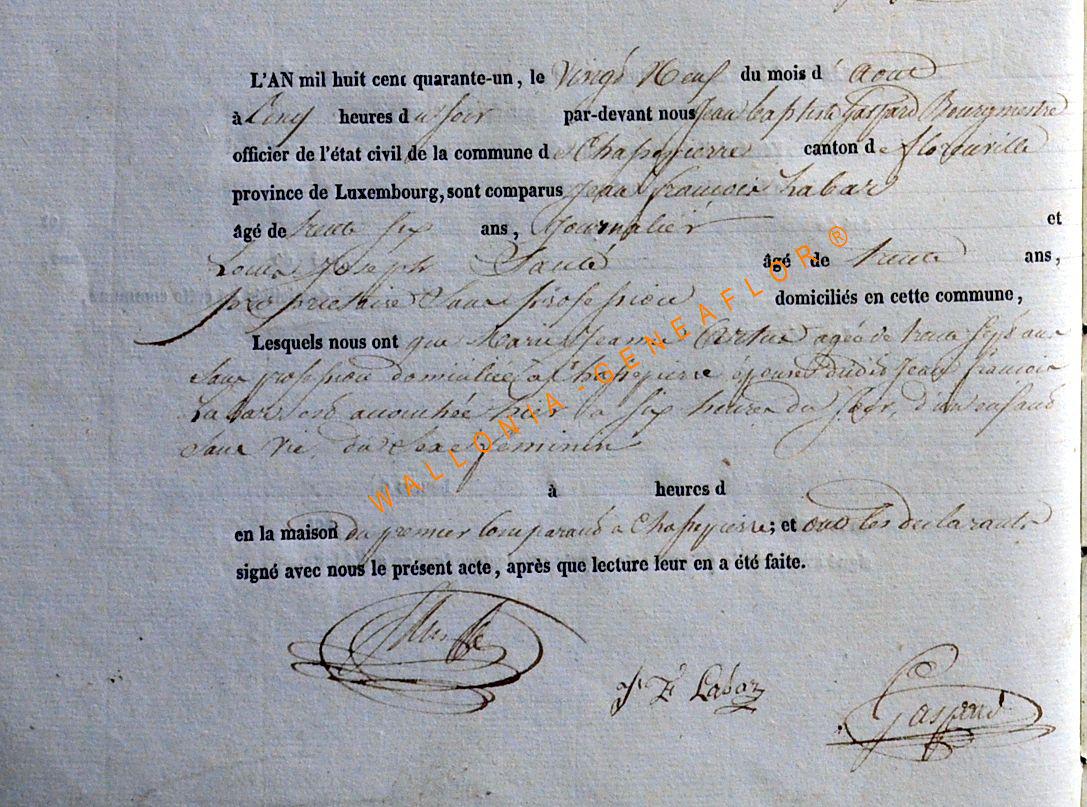 L'AN mil huit cent quarante-un, le Vingt Neuf du mois d'aout
à Cinq heures du soir par-devant nous Jean Baptiste Gaspard Bourgmestre
officier de l'état civil de la commune de Chassepierre canton de florenville
province de Luxembourg, sont comparus Jean françois Labar
âgé de trente six ans, Journalier et
Louis Joseph âgé de trente ans,
propriétaire Sans profession domiciliés en cette commune,
Lesquels nous ont que Marie Jeanne agée de trente ans
sans profession domiciliée à Chassepierre épouse dudit Jean françois
Labar est accouchée hier à six heures du soir, d'un enfant
sans vie du sexe feminin
à heures d
en la maison du premier Comparant à Chassepierre; et ont les declarants
signé avec nous le présent acte, après que lecture leur en a été faite.
J. F. Labar
Gaspard
WALLONIA-GENEAFLOR®